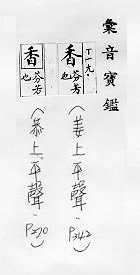 彙音寶鑑
丁一九·
香芬芳也
(姜上平聲·P342)
香芬芳也
(恭上平聲·P270)